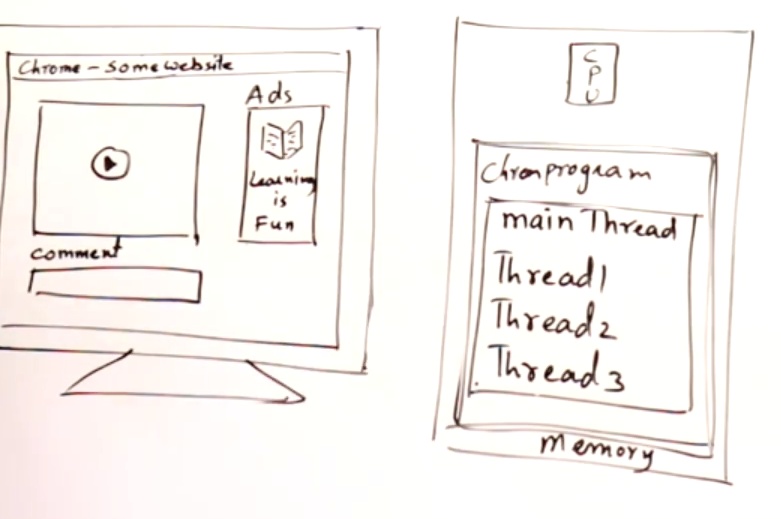 Chrome - Some website
Ads
Learning
is
Fun
comment
CPU
Chromprogram
main Thread
Thread1
Thread2
Thread3
Memory